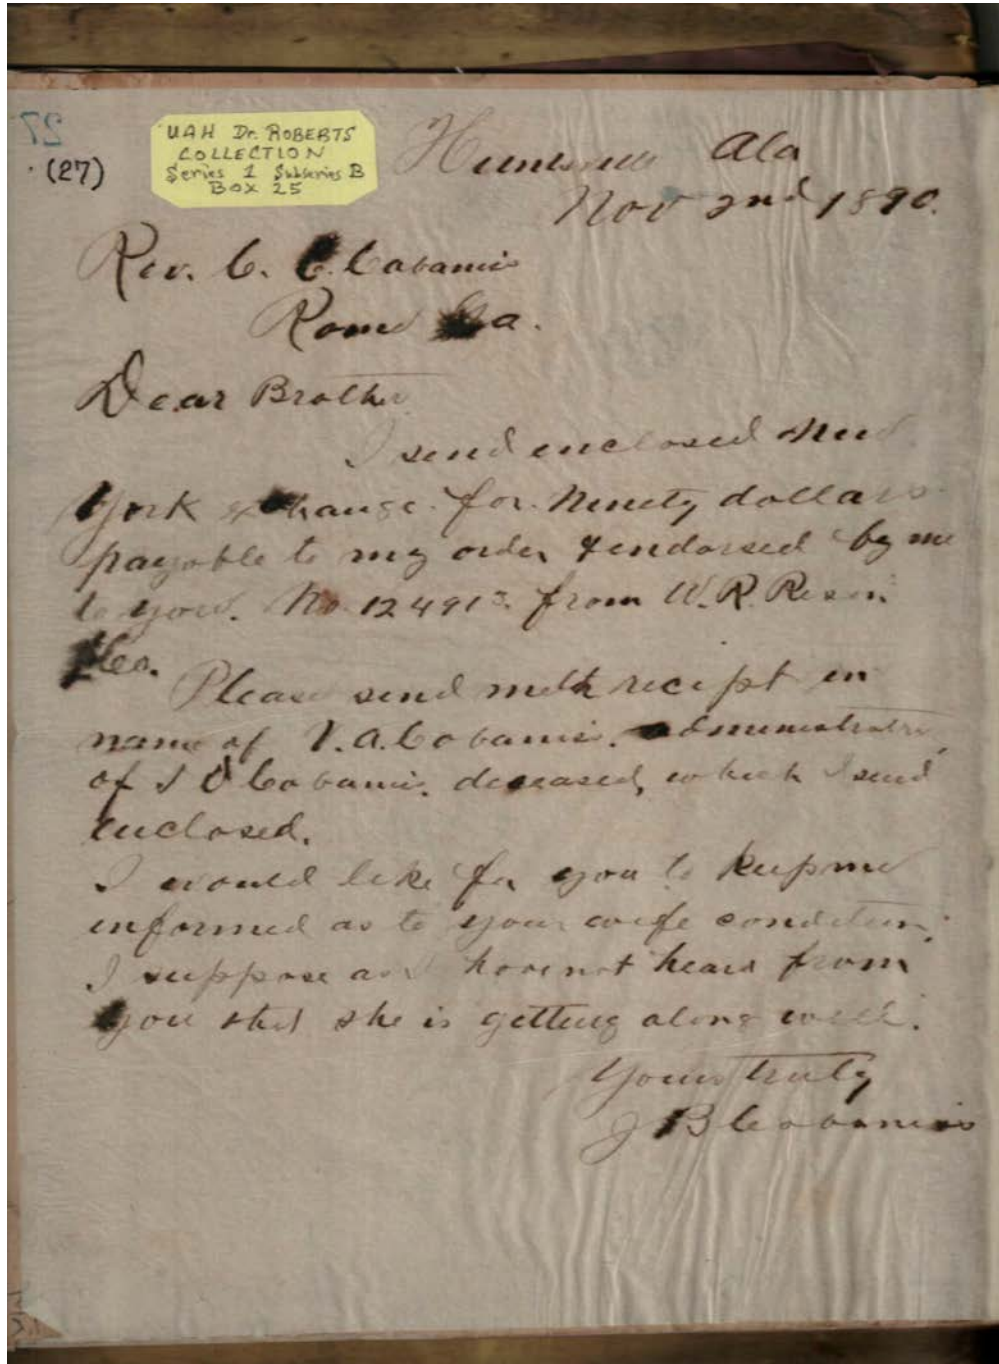 27
(27)
UAH Dr. ROBERTS
COLLECTION
Series 1 Subseries B
Box 25
Ala
Nov 2nd 1890.
Rev. C. C. Cabaniss
Rome Ga.
Dear Brother
I send enclosed New
York exchange for Ninety dollars
payable to my order & endorsed by me
to you. No. 12491 from W. R. Rison
& Co.
Please send me the reciept in
name of V. A. Cabaniss, administrator
of S D Cabaniss, deceased, which I send
enclosed.
I would like for you to keep me
informed as to your wife condition.
I suppose as I have not heard from
you that she is getting along well.
Yours truly
J B Cabaniss